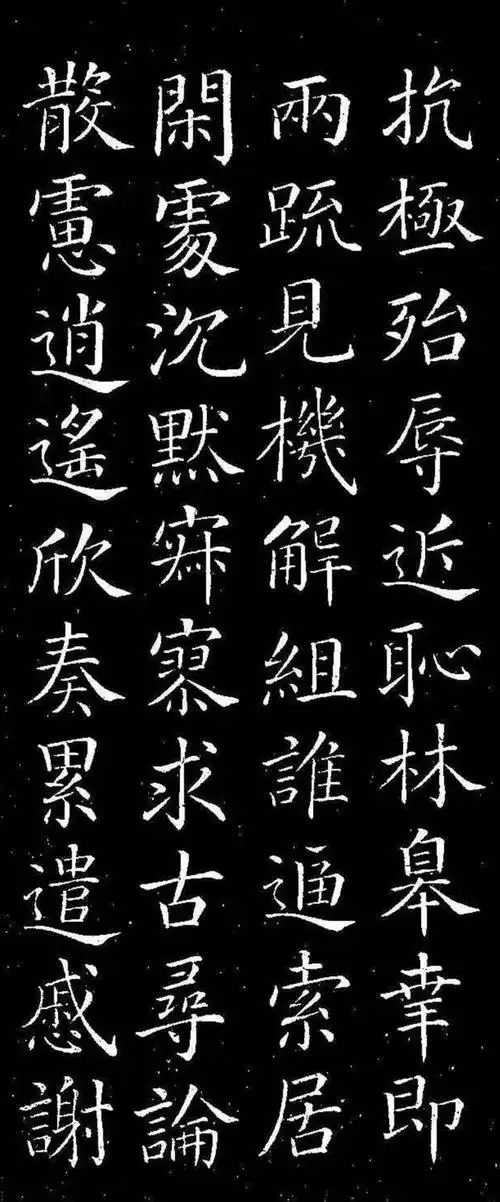 抗極殆辱近恥林皋幸即
兩疏見機解組誰逼索居
閑處沉默寂寥求古尋論
散慮逍遙欣奏累遣慼謝